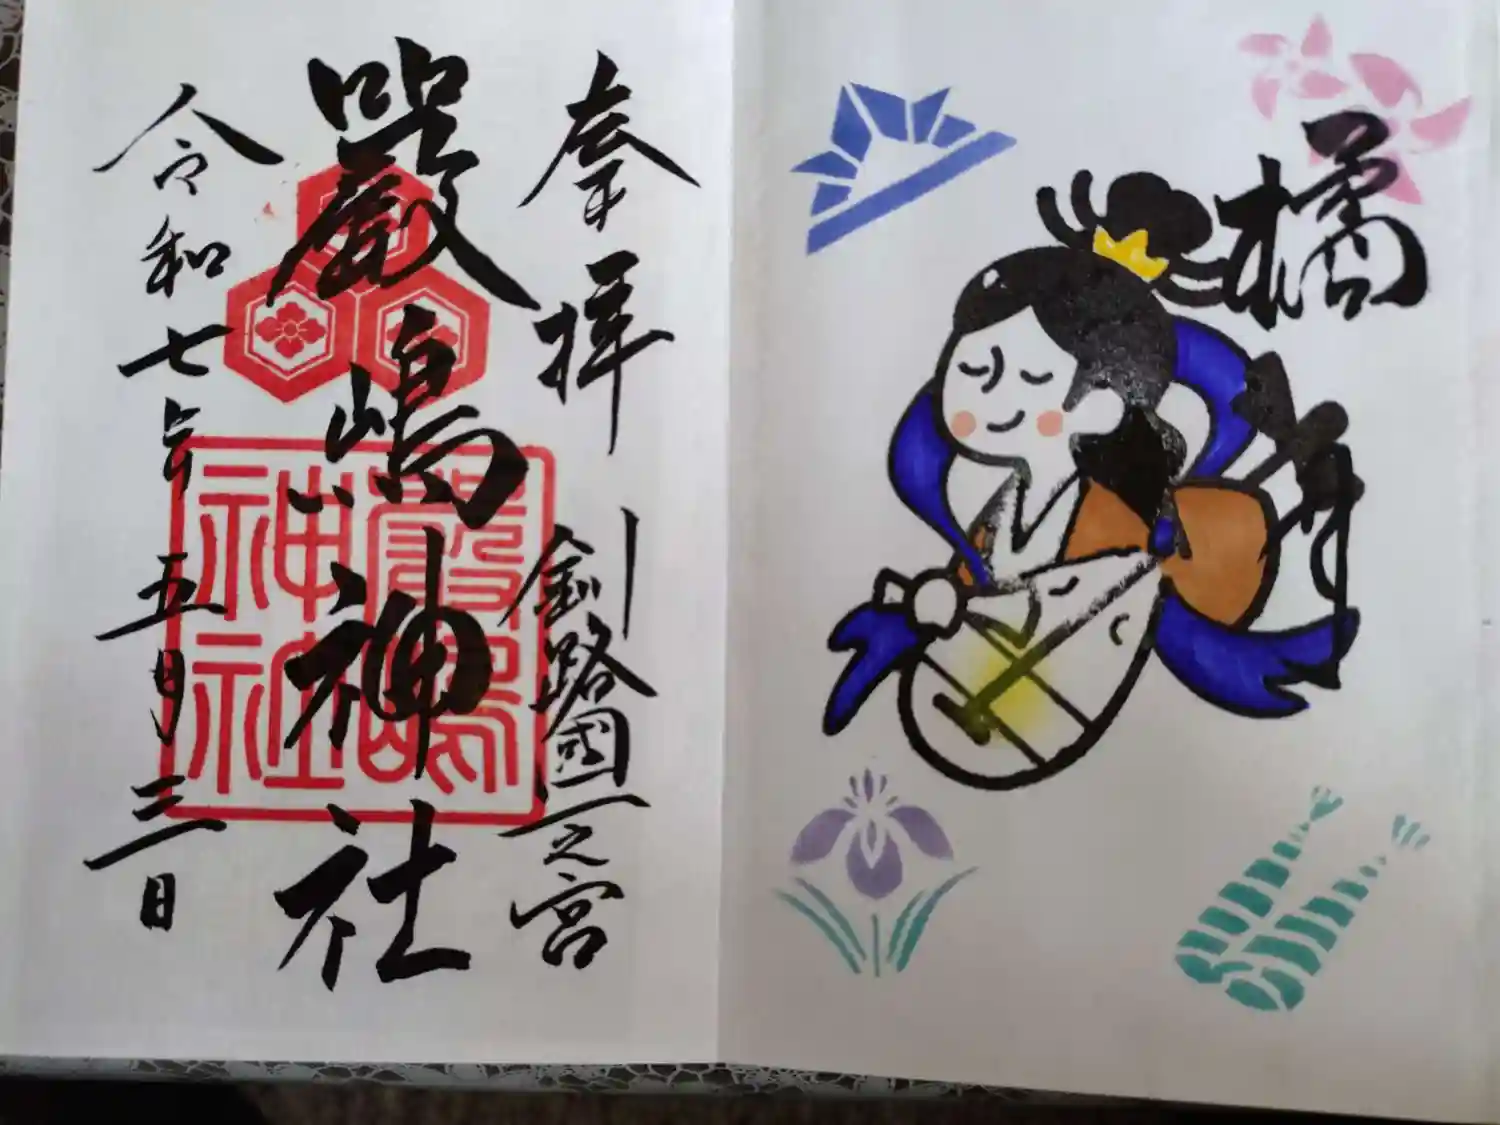 橘
奉拝
釧路國一之宮
嚴嶋神社
嚴嶋神社
令和七年五月三日